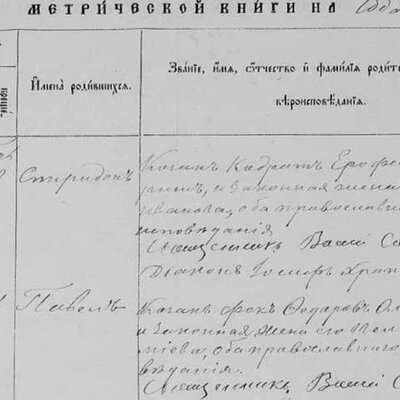 МЕТРИЧЕСКОЙ КНИГИ НА
Имена родившихся.
Званіе, имя, отчество и фамилія родите
вѣроисповѣданія.
Спиридонъ
Козакъ Кодратъ Ерофе
и законная жена
Иванова, оба православна
исповѣданія
Священникъ Васи
Діаконъ Іосифъ Храп
Павелъ
Козакъ Фока Федоровъ
и законная жена его Пел
оба православнаго
вѣданія.
Священникъ Васи